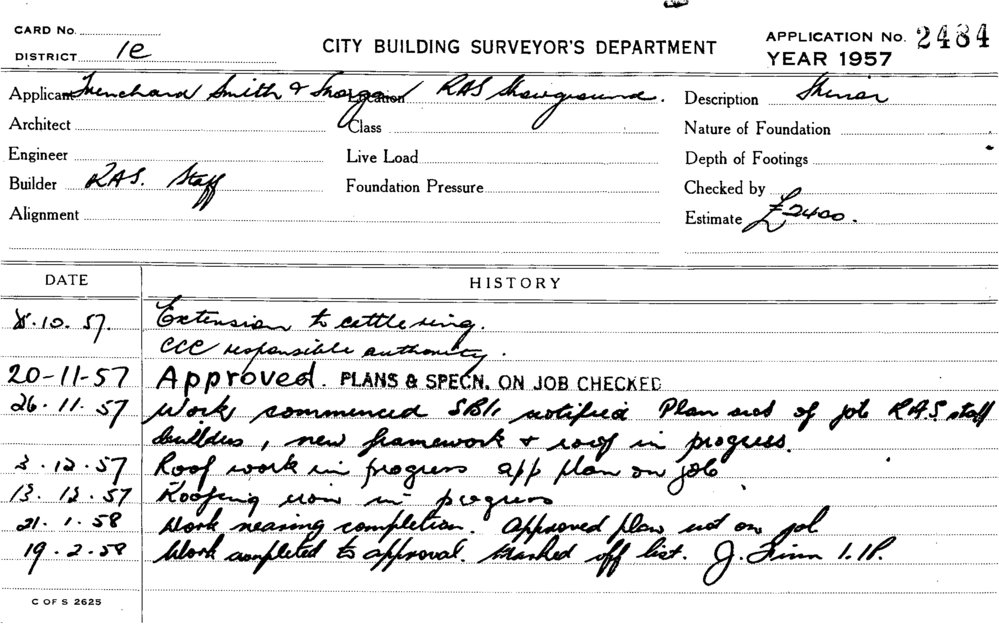 CARD No.
DISTRICT 1e
CITY BUILDING SURVEYOR'S DEPARTMENT
APPLICATION No. 2484
YEAR 1957
Applicant Trenchard Smith & Location RAS Showground. Description
Architect Class Nature of Foundation
Engineer Live Load Depth of Footings
Builder RAS. Staff Foundation Pressure Checked by
Alignment Estimate £2400.
DATE HISTORY
8.10.57. Extension to cattle ring.
CCC responsible authority.
20-11-57 Approved. PLANS & SPECN. ON JOB CHECKED
26.11.57 Work commenced notified Plan not of job R.A.S. staff
builders, new framework & roof in progress.
3.12.57 Roof work in progress app plan on job
13.12.57 Roofing iron in progress
21.1.58 Work nearing completion. Approved plan not on job
19.2.58 Work completed to approval. Marked off list. J.
C OF S 2625